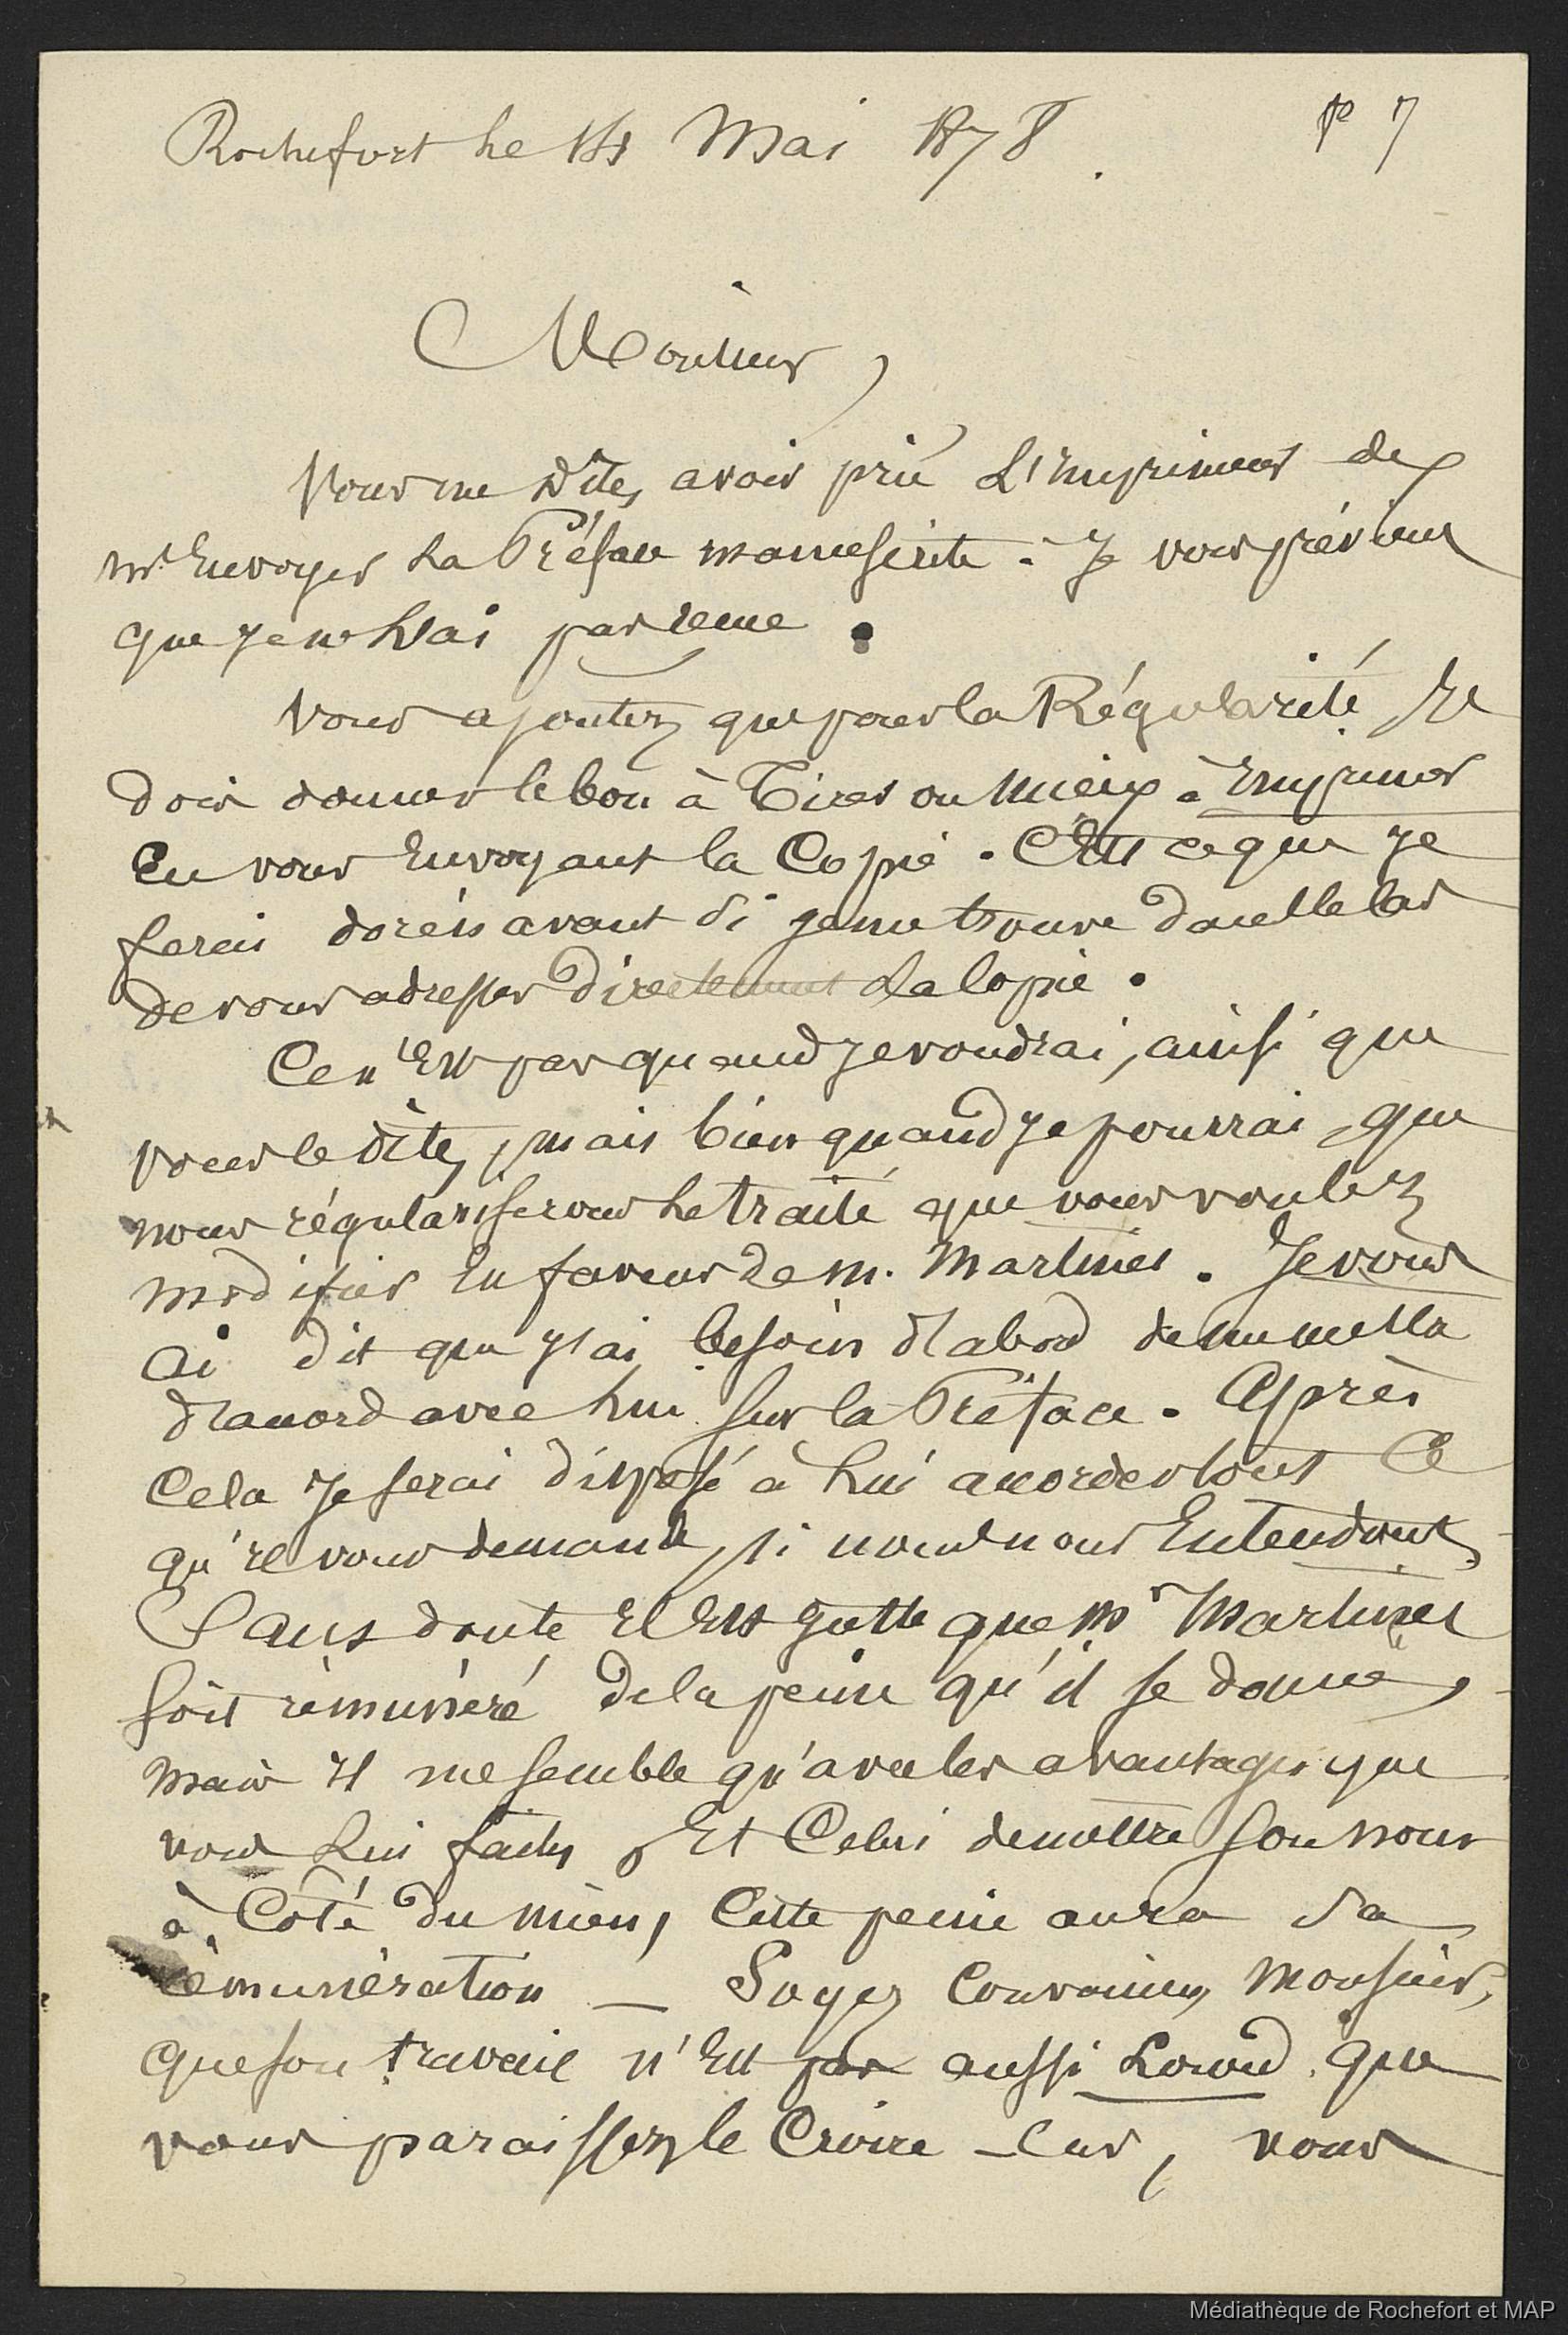 Rochefort le Mai 1878.
Pe 7
Monsieur,
Vous me dites avoir prié L'Imprimeur de
m'Envoyer La Préface manuscrite. Je vous préviens
que Je ne L'ai pas reçue.
Vous ajoutez que pour la Régularité Je
dois donner le bon à Tirer ou Mieux à Imprimer
En vous Envoyant la Copie. C'Est ce que Je
ferai dorénavant Si je me trouve dans le Cas
de vous adresser Directement La Copie.
Ce n'Est pas quand Je voudrai, ainsi que
vous le dites, mais bien quand Je pourrai, que
nous régulariserons Le traité que vous voulez
modifier En faveur de M. Martinet. Je vous
ai dit que J'ai besoin d'abord de me mettre
d'accord avec Lui Sur la Préface. Après
Cela Je serai disposé à Lui accorder tout Ce
qu'Il vous demande, si nous nous Entendons.
Sans doute Il Est Juste que Mr Martinet
Soit rémunéré de la peine qu'il se donne,
Mais Il me semble qu'avec les avantages que
vous Lui faites, Et Celui de mettre Son nom
à Côté du mien, Cette peine aura Sa
rémunération — Soyez Convaincu, Monsieur,
que son travail n'Est pas aussi Lourd que
vous paraissez le Croire - Car, vous
Médiathèque de Rochefort et MAP